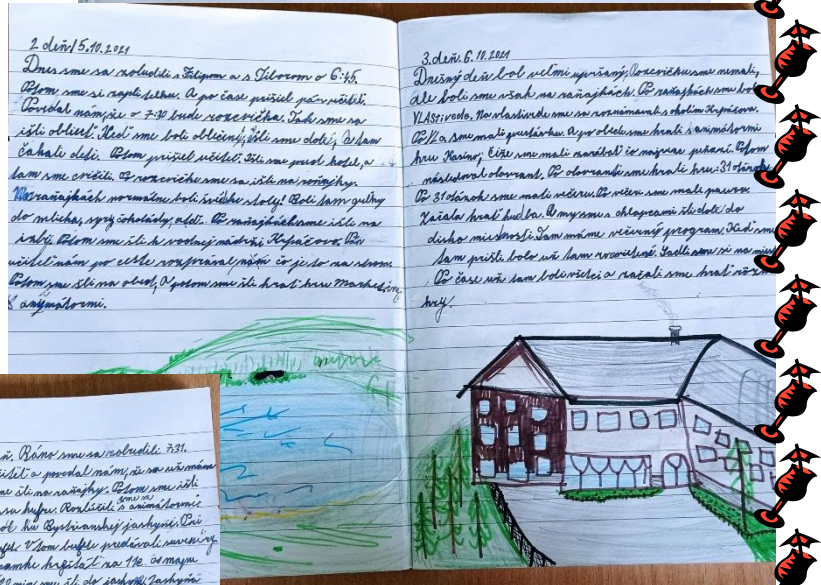 2 deň/5.10.2021
Dnes sme sa zobudili s Filipom a s Tiborom o 6:45.
Potom sme si zapli telku. A po čase prišiel pán učiteľ.
Povedal nám, že o 7:30 bude rozcvička. Tak sme sa
išli obliecť. Keď sme boli oblečený, išli sme dole, a tam
čakali deti. Potom prišiel učiteľ. Išli sme pred hotel, a
tam sme cvičili. O rozcvičke sme sa išli na raňajky.
Na raňajkách normálne boli švédske stoly! Boli tam guľky
do mlieka, syry, čokolády, atď. Po raňajkách sme išli na
izby. Potom sme išli k vodnej nádrži Krpáčovo. Pán
učiteľ nám po ceste rozprával, čo je to na strom.
Potom sme išli na obed, a potom sme išli hrať hru Marketing
s animátormi.
3. deň. 6.10.2021
Dnešný deň bol veľmi upršaný. Rozcvičku sme nemali,
ale boli sme však na raňajkách. Po raňajkách sme bol
VLASTiveda. Na vlastivede sme sa rozoznávali s okolím Krpáčova.
sme mali prestávku. A po obede sme hrali s animátormi
hru Kasíno; Čiže sme mali zarábať čo najviac peňazí. Potom
následoval olovrant. Po olovrante sme hrali hru: 31 otázok.
Po 31 otázok sme mali večeru. Po večeri sme mali pauzu.
Začala hrať hudba. A my sme s chlapcami išli dole do
disko miestnosti. Tam máme večerný program. Keď sme
tam prišli bolo už tam rozsvietené. Sadli sme si na
Po čase už tam boli všetci a začali sme hrať rôzn
hry.
Ráno sme sa zobudili 7:31.
a povedal nám, že sa už máme
išli na raňajky. Potom sme išli
kufre. Rozlúčili sme sa s animátormi
ku Bystrianskej jaskyni. Pri
V tom bufete predávali suveníry
za 11€ čo mapu
sme išli do jaskyne. Jaskyňa